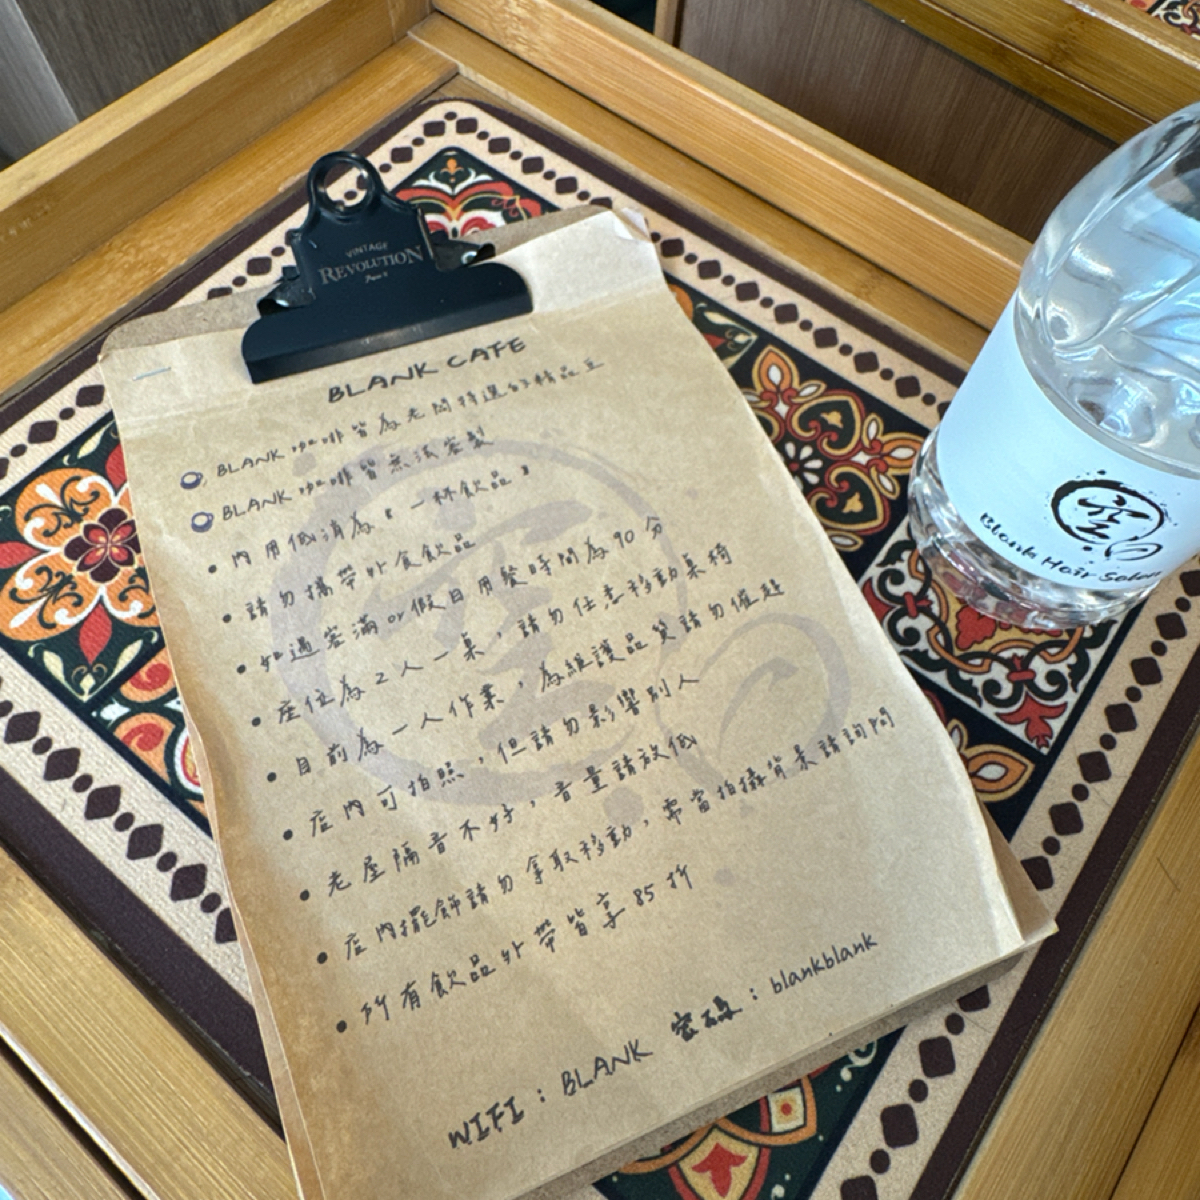 VINTAGE
REVOLUTION
BLANK CAFE
BLANK 咖啡皆為老闆特選的精品豆
BLANK 咖啡皆無法客製
• 內用低消為「一杯飲品」
• 請勿攜帶外食飲品
• 如遇客滿 or 假日用餐時間為 90 分
• 座位為 2 人一桌，請勿任意移動桌椅
• 目前為一人作業，為維護品質請勿催趕
• 店內可拍照，但請勿影響別人
• 老屋隔音不好，音量請放低
• 店內擺飾請勿拿取移動，需當拍攝背景請詢問
• 所有飲品外帶皆享 85 折
WIFI : BLANK 密碼 : blankblank
空
空
Blank Hair Salon